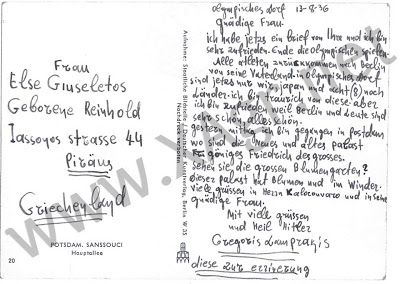 Frau
Else Giuseletos
Geborene Reinhold
Iassonos strasse 44
Piräus
Griechenland
POTSDAM. SANSSOUCI
Hauptallee
20
Aufnahme: Staatliche Bildstelle • Deutscher Kunstverlag, Berlin W 35
Nachdruck verboten
olympisches dorf 13-8-36
gnädige Frau.
ich habe jetzs ein brief von Ihre und ich bin
sehr zufrieden. Ende die olympische spielen.
Alle atleten zurückkommen nach Berlin
von seine Vaterland. in olympisches dorf
sind jetzs nur wir, japan und acht (8) noch
Länder. ich bin traurich von diese aber
ich bin zufrieden weil Berlin und Leute sind
sehr schön alles schön.
gestern mittag ich bin gegangen in postdam
wo sind das Neues und altes palast
königes Friedrich des grosses.
sehen sie die grossen Blumengarten?
Dieser palast hat Blumen und im Winder.
viele grüssen in Herrn und in seine
gnädige Frau.
Mit viele grüssen
und Heil Hitler
Gregoris Lampra
diese zur errirerung
www.